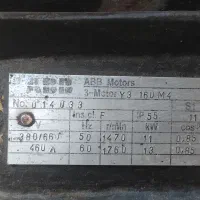 ABB Motors
3-Motor 160 M4
No. 014033 S1
ins.cl. F IP 55
Hz r/min kW cos
50 1470 11 0.85
460 60 1760 13 0.85